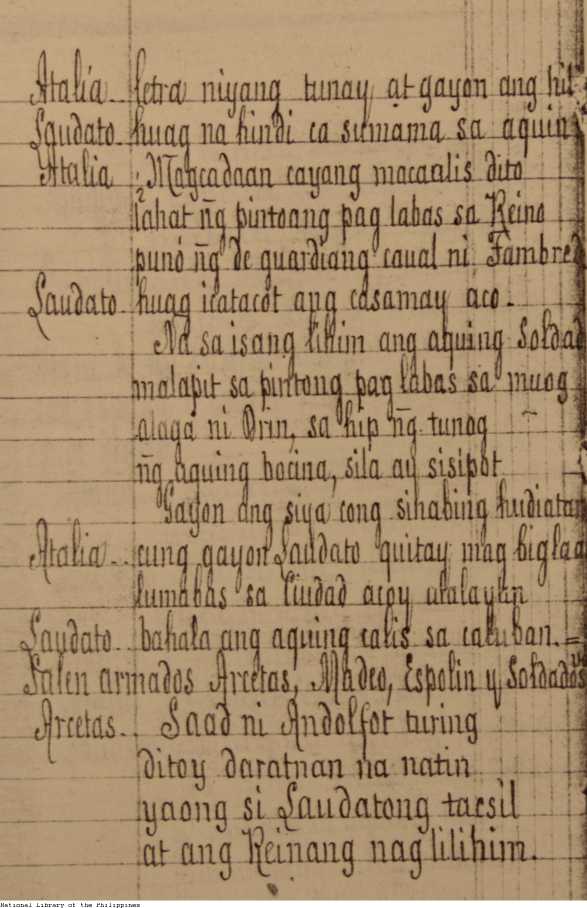 Atalia.. letra niyang tunay at gayon ang
Laudato. huag na hindi ca sumama sa aquin
Atalia ¿Magcadaan cayang macaalis dito
lahat n̄g pintoang pag labas sa Reino
punó n̄g de guardiang caual ni Fambre
Laudato. huag icatacot ang casamay aco.
Na sa isang lihim ang aquing Soldad
malapit sa pintong pag labas sa muog
alaga ni Orin, sa hip n̄g tunog
n̄g aquing bocina, sila ay sisipot
Gayon ang siya cong sihabing hudiatan
Atalia.. cung gayon Laudato quitay mag biglaa
lumabas sa Ciudad acoy alalayan
Laudato.. bahala ang aquing calis sa caluban.=
Salen armados Arcetas, Madeo, Espolin y Soldados
Arcetas.. Saad ni Andolfot turing
ditoy daratnan na natin
yaong si Laudatong tacsil
at ang Reinang nag lilihim.
National Library of the Philippines